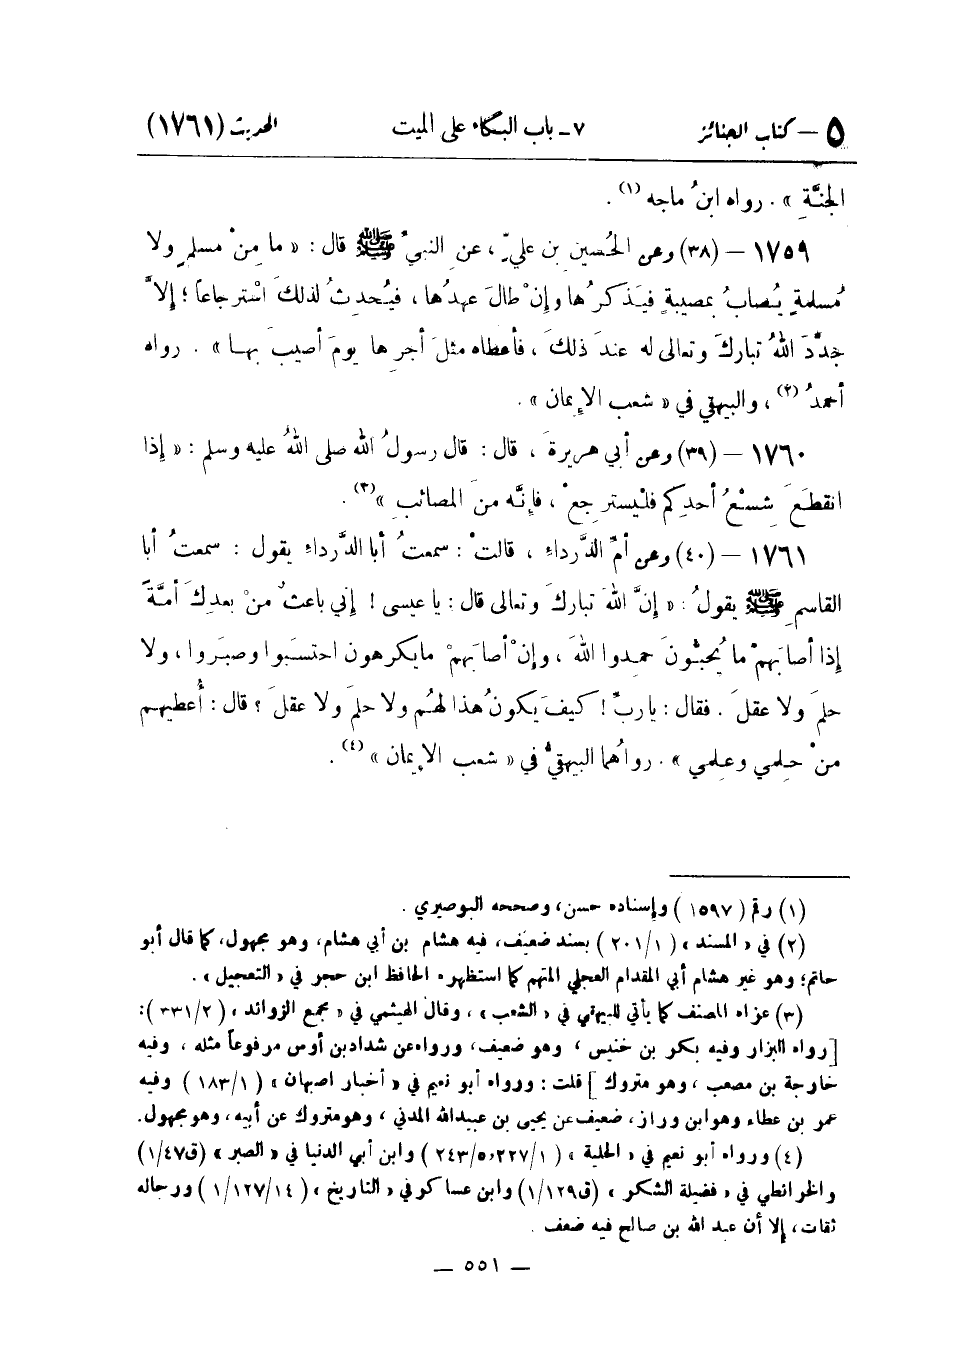 ٥ – كتاب الجنائز ٧ـ باب البكاء على الميت الحديث (١٧٦١)
الجنَّةِ » . رواه ابنُ ماجه (١) .
١٧٥٩ – (٣٨) وعن الحُسينِ بنِ عليٍّ ، عنِ النبيِّ ﷺ قال : « ما مِنْ مسلمٍ ولا
مُسلمةٍ يُصابُ بمصيبةٍ فيَذكرُها وإنْ طالَ عهدُها ، فيُحدِثُ لذلكَ اسْترجاعاً ؛ إلاَّ
جدَّدَ اللهُ تباركَ وتعالى له عندَ ذلكَ ، فأعطاه مثلَ أجرِها يومَ أصيبَ بها » . رواه
أحمدُ (٢) ، والبيهقي في « شعب الإيمان » .
١٧٦٠ – (٣٩) وعن أبي هريرةَ ، قال : قال رسولُ الله صلى اللهُ عليه وسلم : « إذا
انقطَعَ شِسْعُ أحدِكم فلْيسترجِعْ ، فإنَّه منَ المصائبِ » (٣) .
١٧٦١ – (٤٠) وعن أمِّ الدَّرداءِ ، قالتْ : سمعتُ أبا الدَّرداءِ يقول : سمعتُ أبا
القاسمِ ﷺ يقولُ : « إنَّ اللهَ تباركَ وتعالى قال : يا عيسى ! إني باعثٌ منْ بعدِكَ أمَّةً
إذا أصابَهمْ ما يُحبُّونَ حمِدوا اللهَ ، وإنْ أصابَهمْ مايكرهون احتسَبوا وصبَروا ، ولا
حلمَ ولا عقلَ . فقال : ياربِّ ! كيفَ يكونُ هذا لهُم ولا حلمَ ولا عقلَ ؟ قال : أُعطيهم
منْ حِلمي وعِلمي » . رواهُما البيهقيُّ في « شعب الإيمان » (٤) .
(١) رقم ( ١٥٩٧ ) وإسناده حسن، وصححه البوصيري .
(٢) في « المسند » ( ٢٠١/١ ) بسند ضعيف، فيه هشام بن أبي هشام، وهو مجهول، كما قال أبو
حاتم؛ وهو غير هشام أبي المقدام العجلي المتهم كما استظهره الحافظ ابن حجر في « التعجيل » .
(٣) عزاه المصنف كما يأتي للبيهقي في « الشعب » ، وقال الهيثمي في « مجمع الزوائد » ( ٣٣١/٢ ):
[رواه البزار وفيه بكر بن خنيس ، وهو ضعيف، ورواه عن شداد بن أوس مرفوعاً مثله ، وفيه
خارجة بن مصعب ، وهو متروك ] قلت : ورواه أبو نعيم في « أخبار اصبهان » ( ١٨٣/١ ) وفيه
عمر بن عطاء وهو ابن وراز، ضعيف عن يحيى بن عبيدالله المدني ، وهو متروك عن أبيه، وهو مجهول.
(٤) ورواه أبو نعيم في « الحلية » ( ٢٢٧/١ و٢٤٣/٥ ) وابن أبي الدنيا في « الصبر » (ق١/٤٧)
والخرائطي في « فضيلة الشكر » (ق١/١٢٩) وابن عساكر في « التاريخ » ( ١/١٢٧/١٤ ) ورجاله
ثقات، إلا أن عبد الله بن صالح فيه ضعف .
— ٥٥١ —